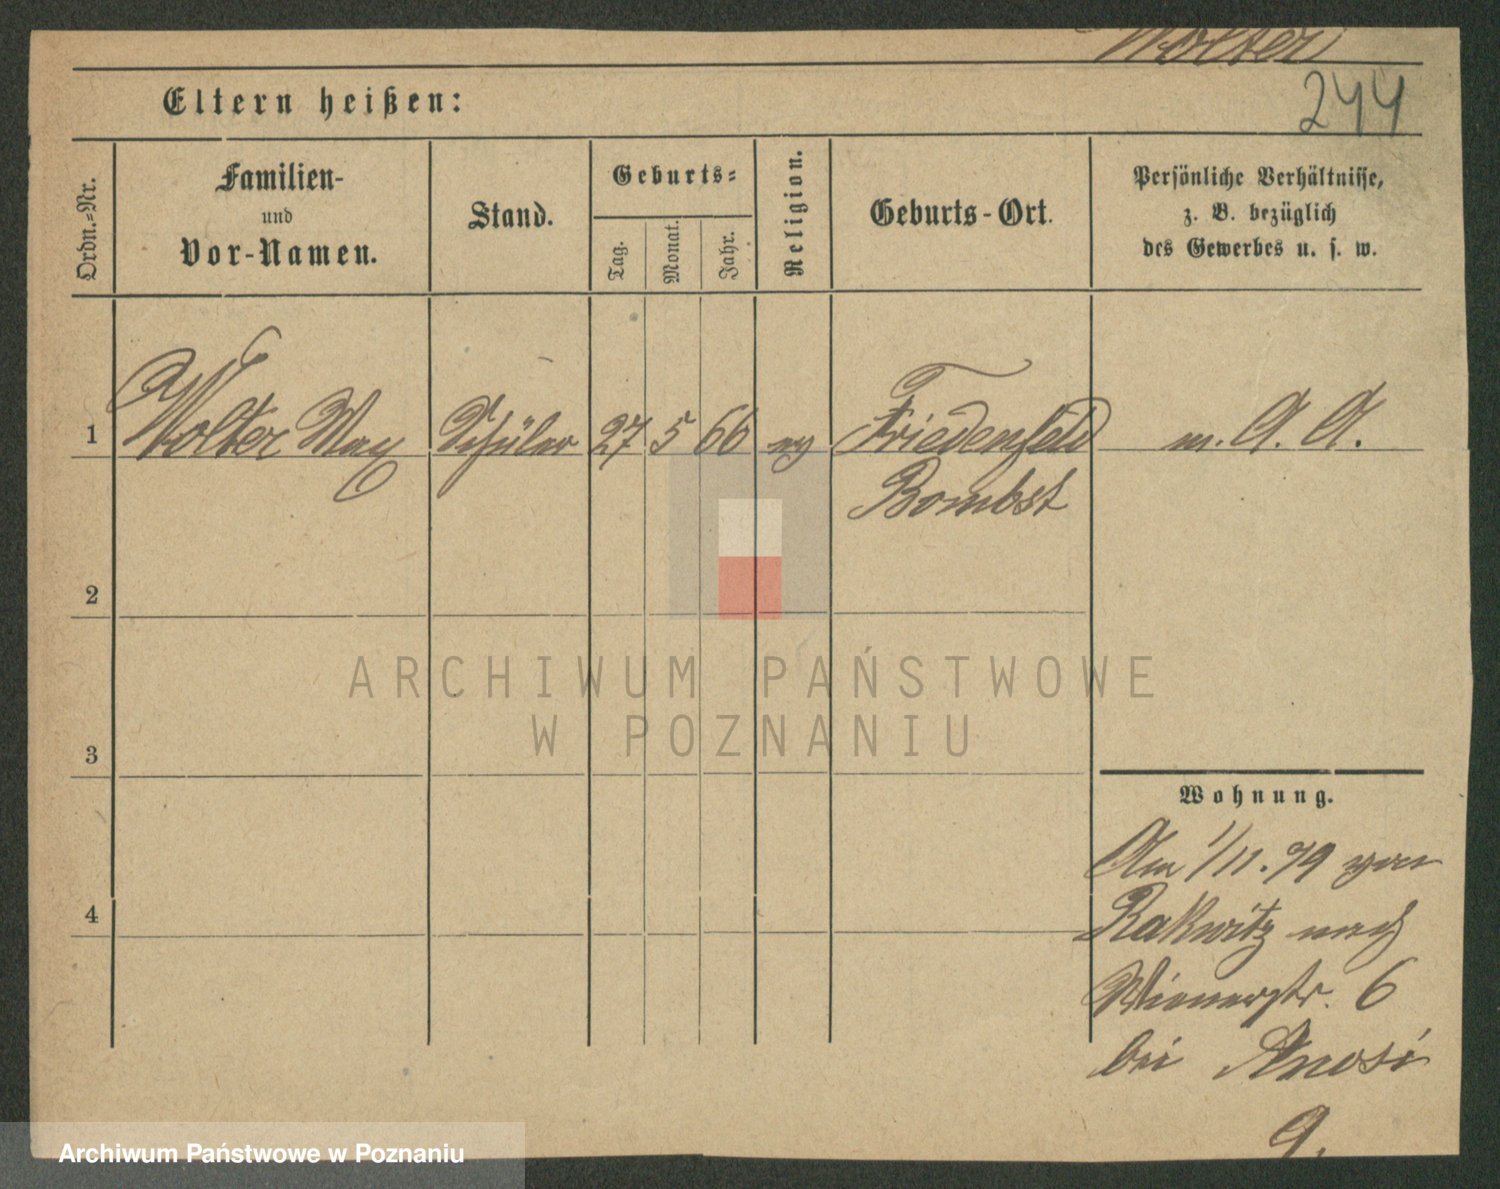 Wolter
244
Eltern heißen:
Ordn.-Nr.
Familien-
und
Vor-Namen.
Stand.
Geburts-
Tag.
Monat.
Jahr.
Religion.
Geburts-Ort.
Persönliche Verhältnisse,
z. B. bezüglich
des Gewerbes u. s. w.
1 Wolter Max Schüler 27 5 66 ev Friedenfeld m. A. A.
Bombst
2
3
4
Wohnung.
Am 1/11.79 von
Rakwitz nach
Wienerstr. 6
bei
9.
ARCHIWUM PAŃSTWOWE
W POZNANIU
Archiwum Państwowe w Poznaniu